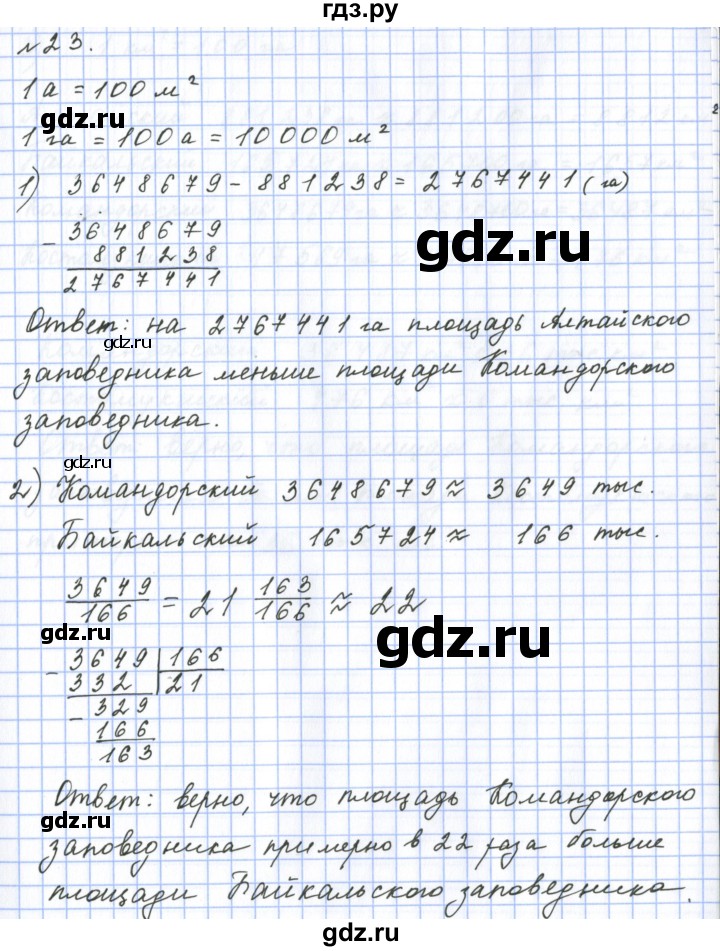 гдз.ру
№23.
1 а = 100 м²
gdz.ru
1 га = 100 а = 10 000 м²
1) 3648679 - 881238 = 2767441 (га)
- 3648679
881238
2767441
gdz.ru
Ответ: на 2767441 га площадь Алтайского
gdz.ru
заповедника меньше площади Командорского
заповедника.
gdz.ru
2) Командорский 3648679 ≈ 3649 тыс.
Байкальский 165724 ≈ 166 тыс.
3649/166 = 21 163/166 ≈ 22
gdz.ru
gdz.ru
- 3649 | 166
332 | 21
- 329
166
163
Ответ: верно, что площадь Командорского
gdz.ru
заповедника примерно в 22 раза больше
площади Байкальского заповедника.
gdz.ru